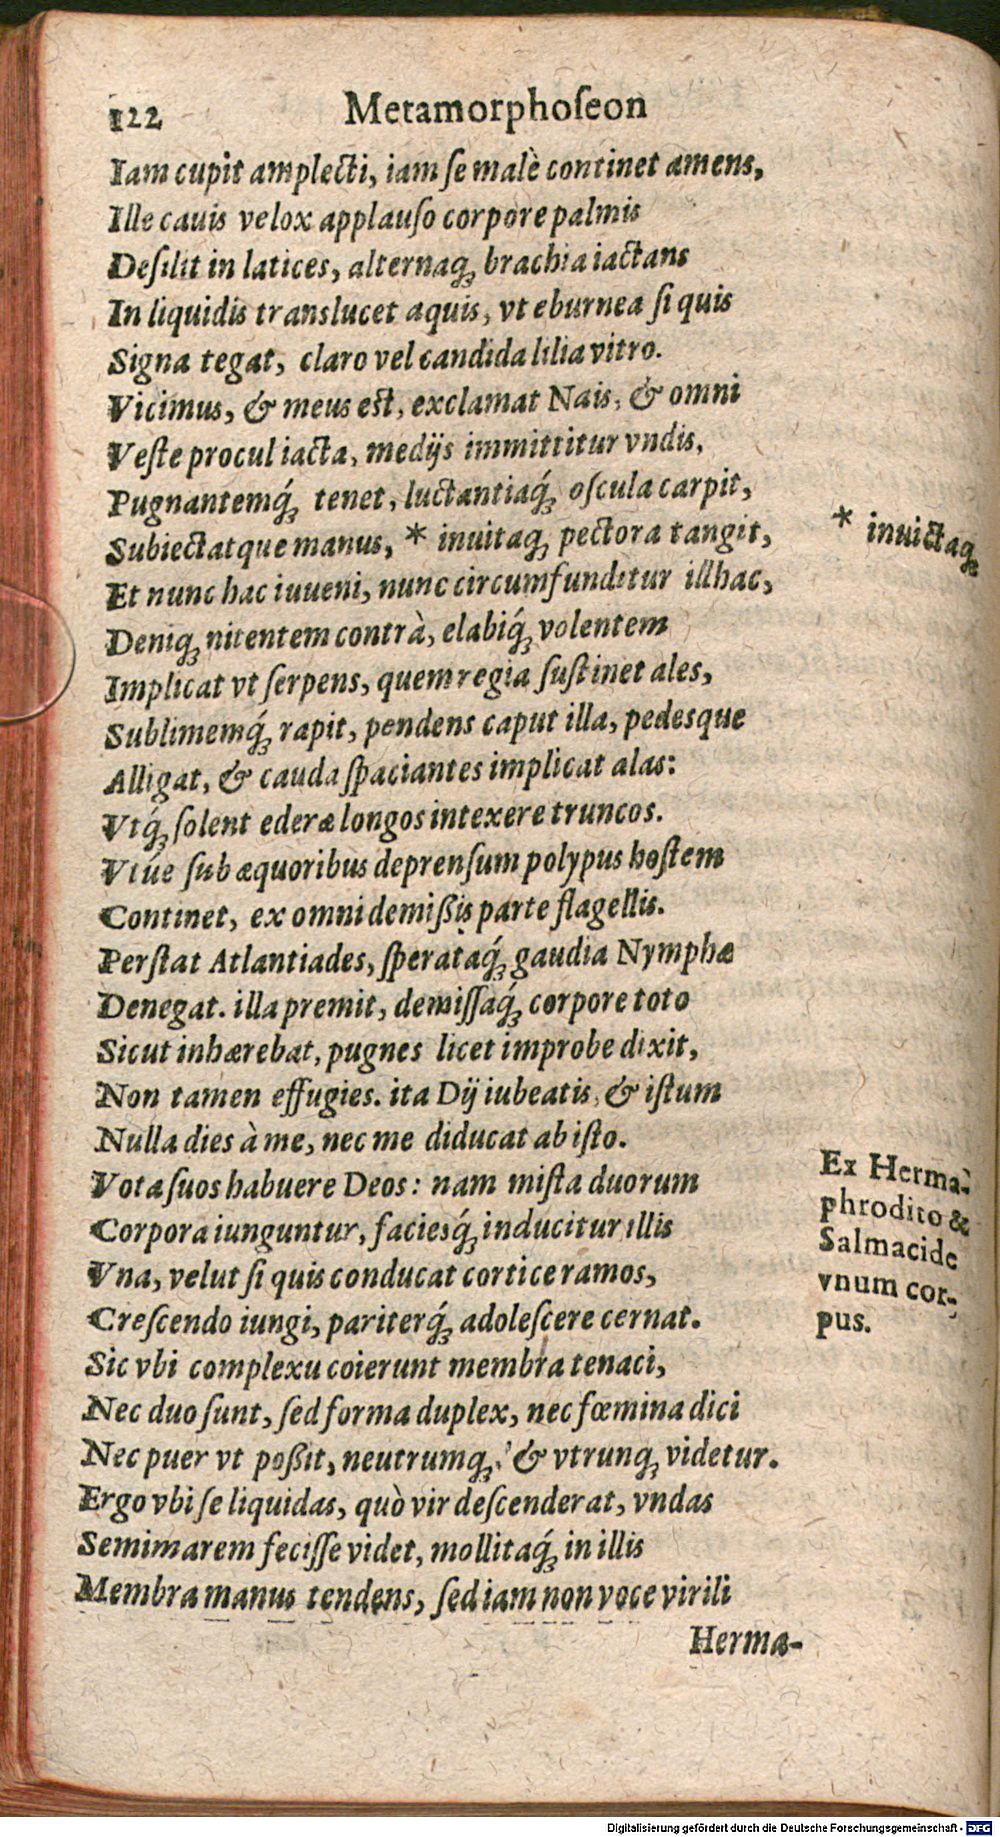 122 Metamorphoſeon
Iam cupit amplecti, iam ſe malè continet amens,
Ille cauis velox applauſo corpore palmis
Deſilit in latices, alternaq; brachia iactans
In liquidis translucet aquis, vt eburnea ſi quis
Signa tegat, claro vel candida lilia vitro.
Vicimus, & meus est, exclamat Nais, & omni
Veſte procul iacta, medijs immittitur vndis,
Pugnantemq́; tenet, luctantiaq́; oſcula carpit,
Subiectatque manus, * inuitaq; pectora tangit,
* inuictaq;
Et nunc hac iuueni, nunc circumfunditur illhac,
Deniq; nitentem contrà, elabiq́; volentem
Implicat vt ſerpens, quem regia ſuſtinet ales,
Sublimemq́; rapit, pendens caput illa, pedesque
Alligat, & cauda ſpaciantes implicat alas:
Vtq́; ſolent ederæ longos intexere truncos.
Vtúe ſub æquoribus deprenſum polypus hoſtem
Continet, ex omni demißis parte flagellis.
Perſtat Atlantiades, ſperataq́; gaudia Nymphæ
Denegat. illa premit, demiſſaq́; corpore toto
Sicut inhærebat, pugnes licet improbe dixit,
Non tamen effugies. ita Dij iubeatis, & iſtum
Nulla dies à me, nec me diducat ab iſto.
Vota ſuos habuere Deos: nam miſta duorum
Corpora iunguntur, faciesq́; inducitur illis
Vna, velut ſi quis conducat cortice ramos,
Creſcendo iungi, pariterq́; adoleſcere cernat.
Ex Herma-
phrodito &
Salmacide
vnum cor-
pus.
Sic vbi complexu coierunt membra tenaci,
Nec duo ſunt, ſed forma duplex, nec fœmina dici
Nec puer vt poßit, neutrumq;, & vtrunq; videtur.
Ergo vbi ſe liquidas, quò vir deſcenderat, vndas
Semimarem feciſſe videt, mollitaq́; in illis
Membra manus tendens, ſed iam non voce virili
Herma-
Digitalisierung gefördert durch die Deutsche Forschungsgemeinschaft - DFG